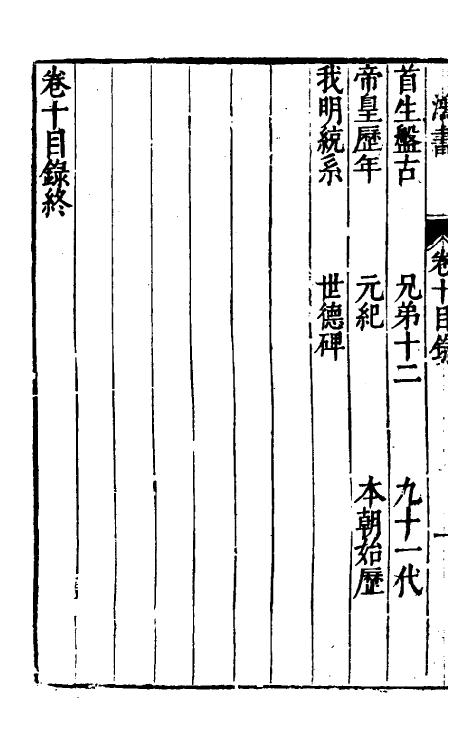 鴻書 卷十目錄 一
首生盤古 兄弟十二 九十一代
帝皇歷年 元紀 本朝始歷
我明統系 世德碑
卷十目錄終